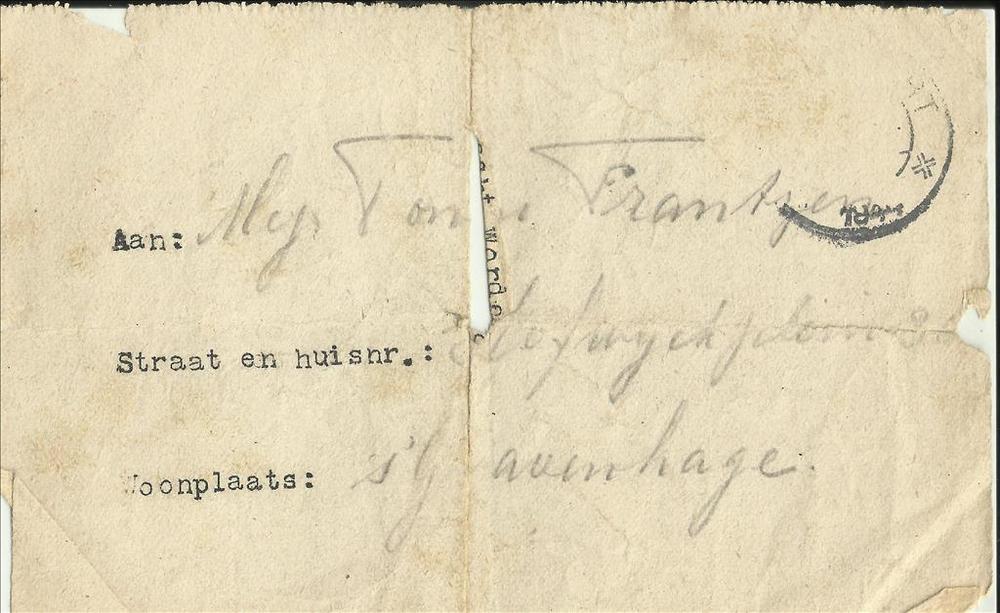 Aan: Mej. Tonni Frantzen
Straat en huisnr.: Hofwyckplein
Woonplaats: s'Gravenhage.
worde